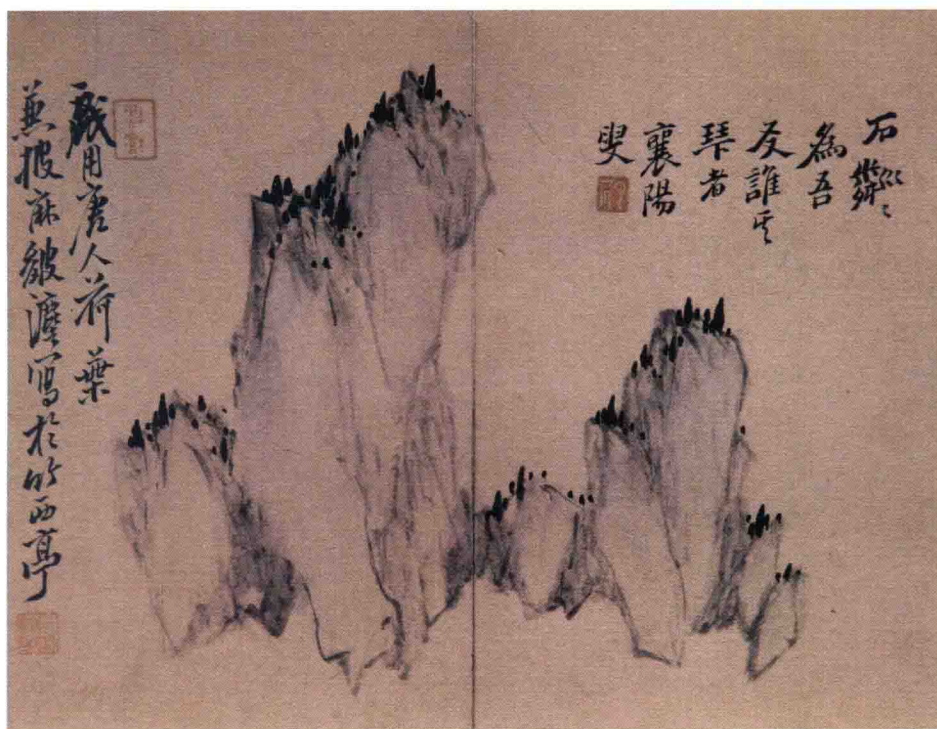 石粼〻
為吾
友誰其
者
襄陽
叟
戲用唐人荷葉
兼披麻皴灋寫於竹西亭